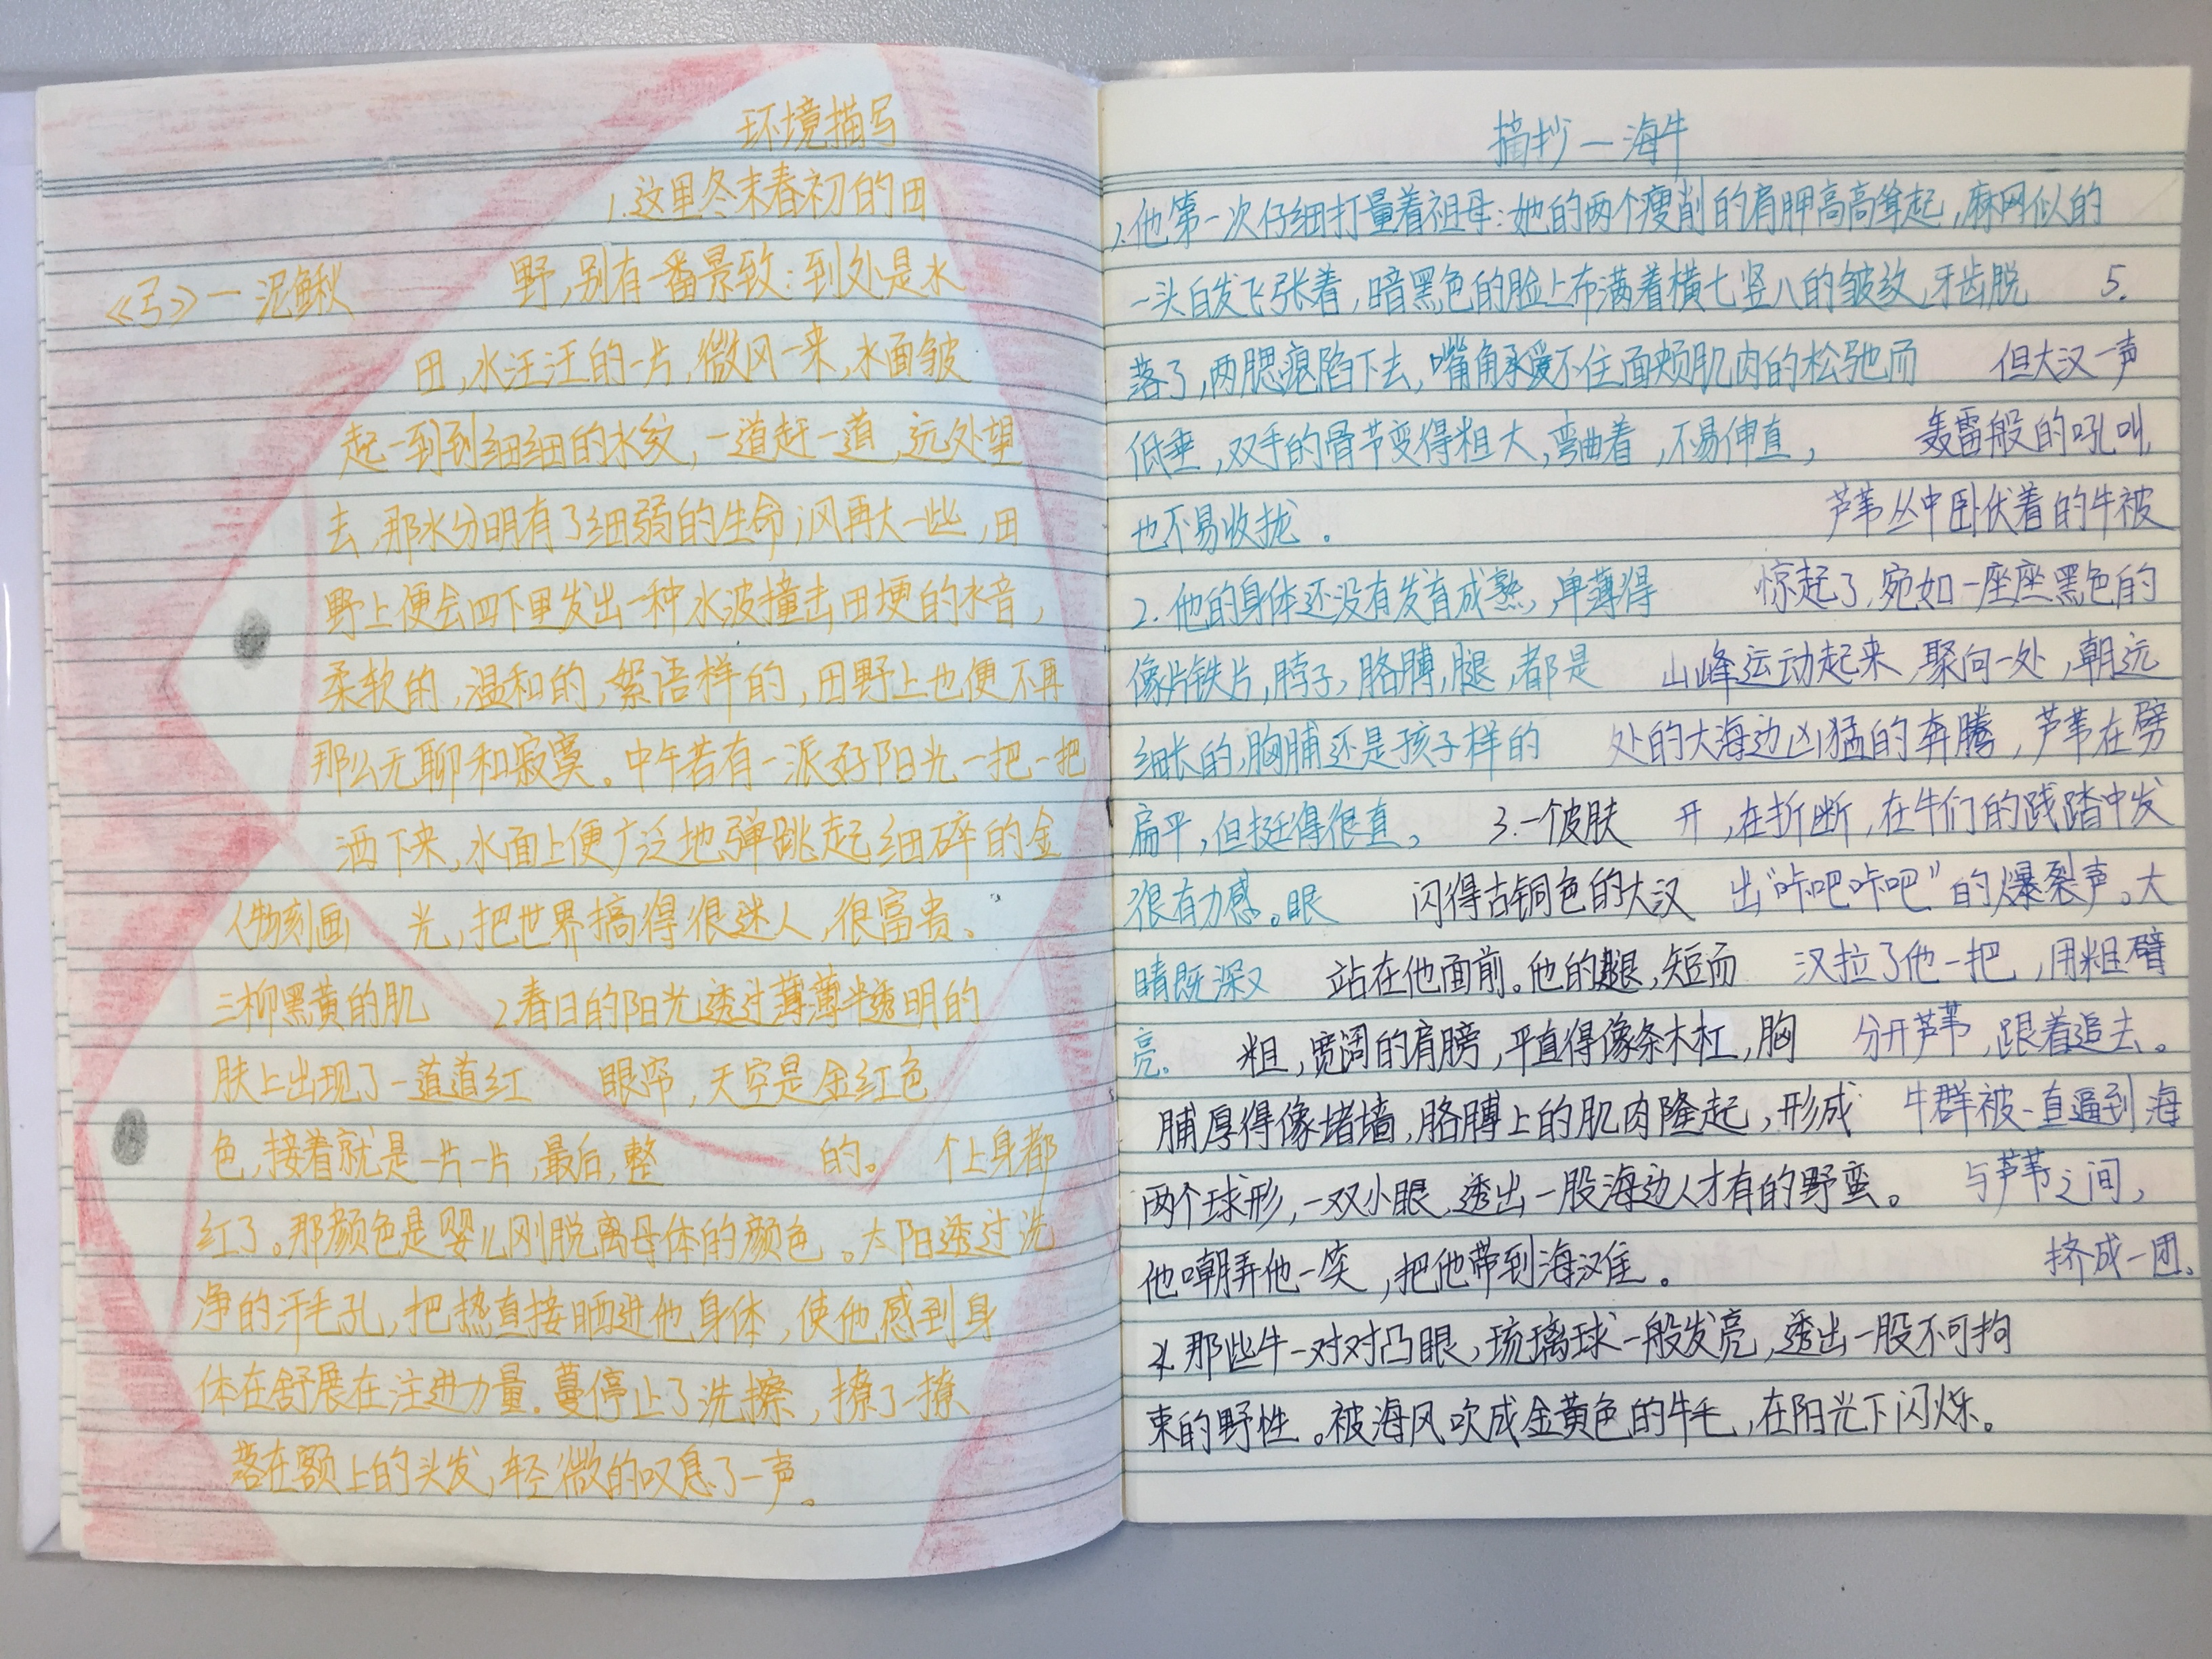 环境描写
1.这里冬末春初的田
《弓》一泥鳅
野,别有一番景致:到处是水
田,水汪汪的一片,微风一来,水面皱
起一到到细细的水纹,一道赶一道,远处望
去,那水分明有了细弱的生命;风再大一些,田
野上便会四下里发出一种水波撞击田埂的水音,
柔软的,温和的,絮语样的,田野上也便不再
那么无聊和寂寞。中午若有一派好阳光一把一把
洒下来,水面上便广泛地弹跳起细碎的金
光,把世界搞得很迷人,很富贵。
人物刻画
三柳黑黄的肌
肤上出现了一道道红
色,接着就是一片一片,最后,整
个上身都
红了。那颜色是婴儿刚脱离母体的颜色。太阳透过洗
净的汗毛孔,把热直接晒进他身体,使他感到身
体在舒展在注进力量。蔓停止了洗擦,撩了一撩
落在额上的头发,轻微的叹息了一声。
2.春日的阳光透过薄薄半透明的
眼帘,天空是金红色
的。
摘抄一海牛
1.他第一次仔细打量着祖母:她的两个瘦削的肩胛高高耸起,麻网似的
一头白发飞张着,暗黑色的脸上布满着横七竖八的皱纹,牙齿脱
落了,两腮瘪陷下去,嘴角承受不住面颊肌肉的松弛而
低垂,双手的骨节变得粗大,弯曲着,不易伸直,
也不易收拢.
2.他的身体还没有发育成熟,单薄得
像片铁片,脖子,胳膊,腿,都是
细长的,胸脯还是孩子样的
扁平,但挺得很直,
很有力感。眼
睛既深又
亮。
3.一个皮肤
闪得古铜色的大汉
站在他面前。他的腿,短而
粗,宽阔的肩膀,平直得像条木杠,胸
脯厚得像堵墙,胳膊上的肌肉隆起,形成
两个球形,一双小眼,透出一股海边人才有的野蛮。
他嘲弄他一笑,把他带到海滩.
4.那些牛一对对凸眼,琉璃球一般发亮,透出一股不可拘
束的野性。被海风吹成金黄色的牛毛,在阳光下闪烁。
5.
但大汉一声
轰雷般的吼叫,
芦苇丛中卧伏着的牛被
惊起了,宛如一座座黑色的
山峰运动起来,聚向一处,朝远
处的大海边凶猛的奔腾,芦苇在劈
开,在折断,在牛们的践踏中发
出“咔吧咔吧”的爆裂声。大
汉拉了他一把,用粗臂
分开芦苇,跟着追去。
牛群被一直逼到海
与芦苇之间,
挤成一团。